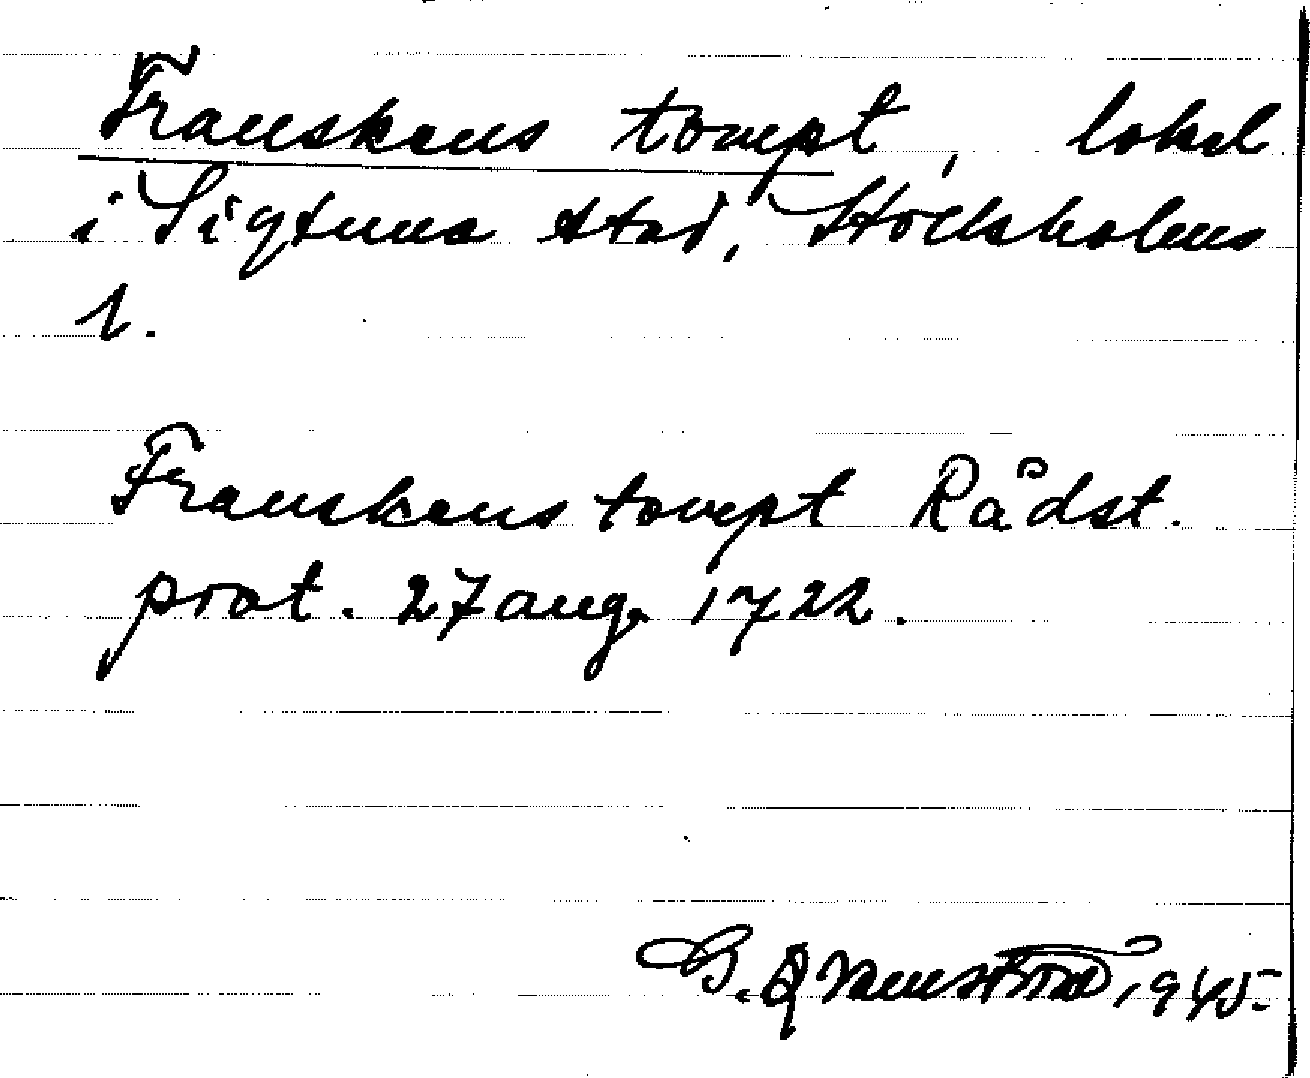 Franskans tompt, lokal
i Sigtuna stad, Stockholms
l.
Franskans tompt Rådst.
prot. 27 aug. 1722.
G. Qvarnström 1945